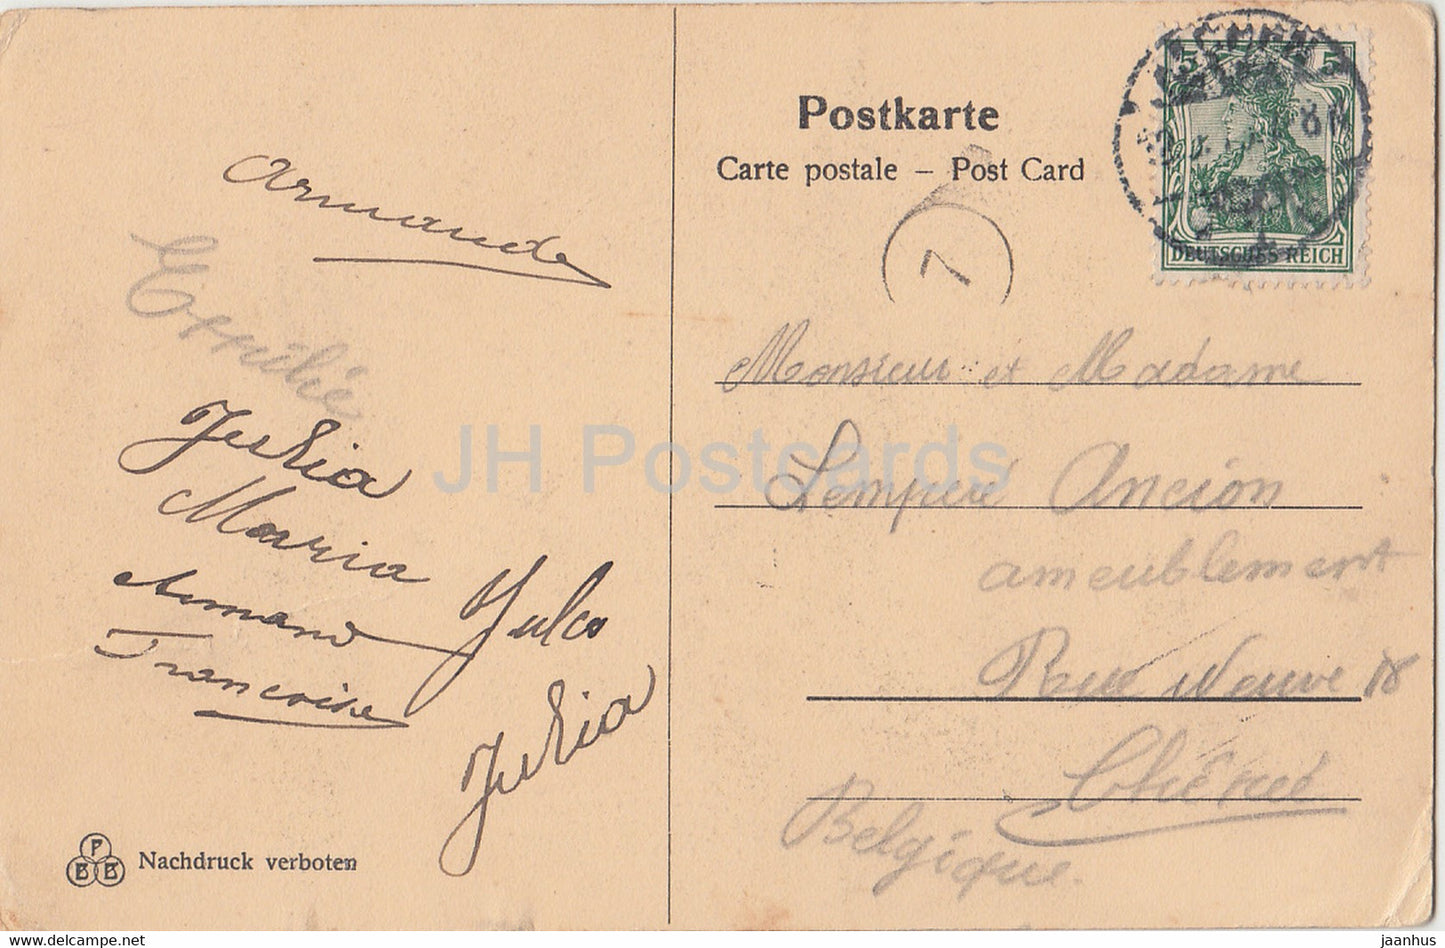 Armande
Emilie
Julia
Maria
Armand
Jules
Françoise
Julia
P
B B
Nachdruck verboten
Postkarte
Carte postale – Post Card
7
5 5
AACHEN
8
DEUTSCHES REICH
Monsieur et Madame
Ancion
ameublement
Rue Neuve 18
Belgique.
JH Postcards
www.delcampe.net
jaanhus